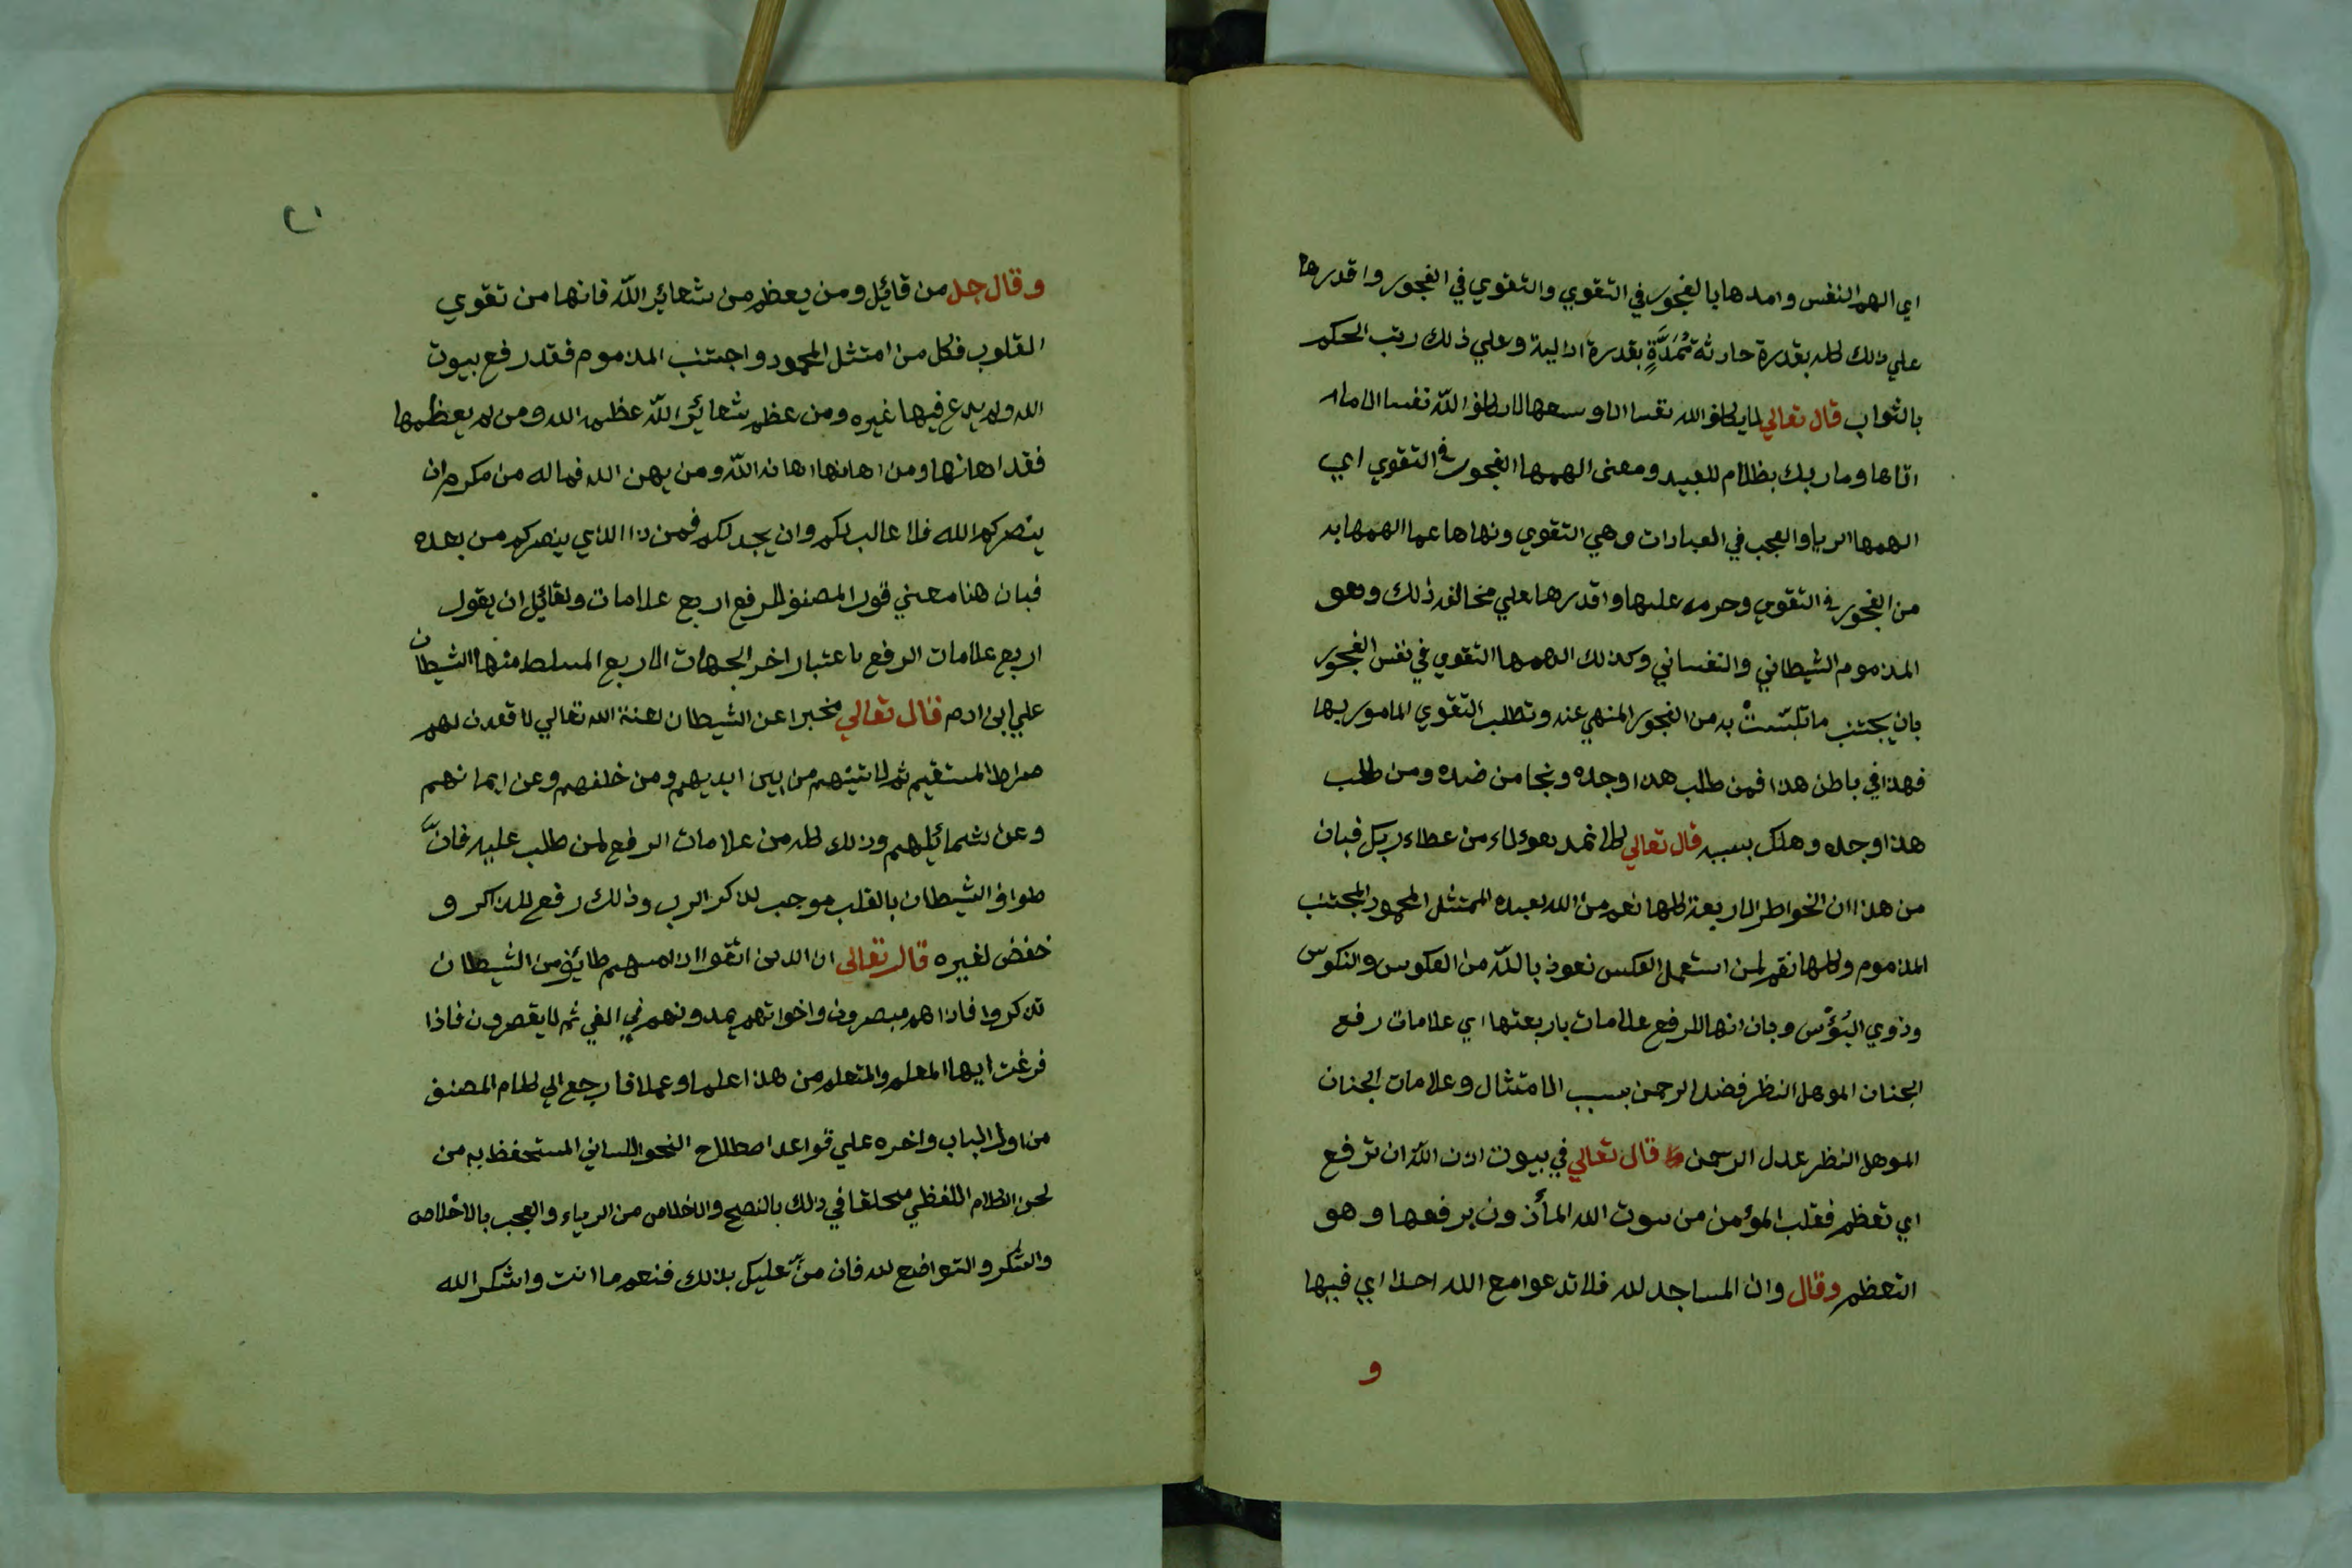 اي الهم النفس وامدها بالفجور في التقوي والتقوي في الفجور واقدرها
علي ذلك كله بقدرة حادثة مُمَدَّةٍ بقدرة ازلية وعلي ذلك رتب الحكم
بالثواب قال تعالي لا يكلف الله نفسا الا وسعها لا يكلف الله نفسا الا ما
اتاها وما ربك بظلام للعبيد ومعنى الهمها الفجور في التقوي اي
الهمها الريا والعجب في العبادات وهي التقوي ونهاها عما الهمها به
من الفجور في التقوي وحرمه عليها واقدرها علي مخالفة ذلك وهو
المذموم الشيطاني والنفساني وكذلك الهمها التقوي في نفس الفجور
بان يجتنب ما تلبّستْ به من الفجور المنهي عنه وتطلب التقوي المامور بها
فهذا في باطن هذا فمن طلب هذا وجده ونجا من ضده ومن طلب
هذا وجده وهلك بسببه قال تعالي كلا نمد هوءلاء من عطاء ربك فبان
من هذا ان الخواطر الاربعة كلها نعم من الله لعبده الممتثل المحمود المجتنب
المذموم وكلها نقم لمن استعمل العكس نعوذ باللّه من العكوس والنكوس
وذوي البُؤْس وبان انها للرفع علامات باربعتها اي علامات رفع
الجنان الموهل النظر فضل الرحمن بسبب الامتثال وعلامات الجنان
الموهل النظر عدل الرحمن قال تعالي في بيوت اذن اللّه ان ترفع
اي تعظم فقلب المؤمن من بيوت الله المأذون برفعها وهو
التعظم وقال وان المساجد لله فلا تدعوا مع الله احدا اي فيها
و
٢١
وقال جل من قائل ومن يعظم من شعائر اللّه فانها من تقوي
القلوب فكل من امتثل المحمود واجتنب المذموم فقد رفع بيوت
الله ولم يدع فيها غيره ومن عظم شعائر اللّه عظمه الله ومن لم يعظمها
فقد اهانها ومن اهانها اهانه اللّه ومن يهن الله فما له من مكرم ان
ينصركم الله فلا غالب لكم وان يخذلكم فمن ذا الذي ينصركم من بعده
فبان هنا معني قول المصنف للرفع اربع علامات ولقائل ان يقول
اربع علامات الرفع باعتبار اخر الجهات الاربع المسلط منها الشيطان
علي ابن ادم قال تعالي مخبرا عن الشيطان لعنة الله تعالي لاقعدن لهم
صراطا المستقيم ثم لاتينهم من بين ايديهم ومن خلفهم وعن ايمانهم
وعن شمائلهم وذلك كله من علامات الرفع لمن طلب عليه فانّ
طواف الشيطان بالقلب موجب لذكر الرب وذلك رفع للذاكر و
خفض لغيره قال تعالي ان الذين اتقوا اذا مسهم طائف من الشيطان
تذكروا فاذا هم مبصرون واخوانهم يمدونهم في الغي ثم لا يقصرون فاذا
فرغت ايها المعلم والمتعلم من هذا علما وعملا فارجع الي كلام المصنف
من اول الباب واخره علي قواعد اصطلاح النحو اللساني المستحفظ به من
لحن الكلام اللفظي متخلقا في ذلك بالنصح والاخلاص من الرياء والعجب بالاخلاص
والشكر والتواضع لله فان منّ عليك بذلك فنعم ما انت واشكر الله